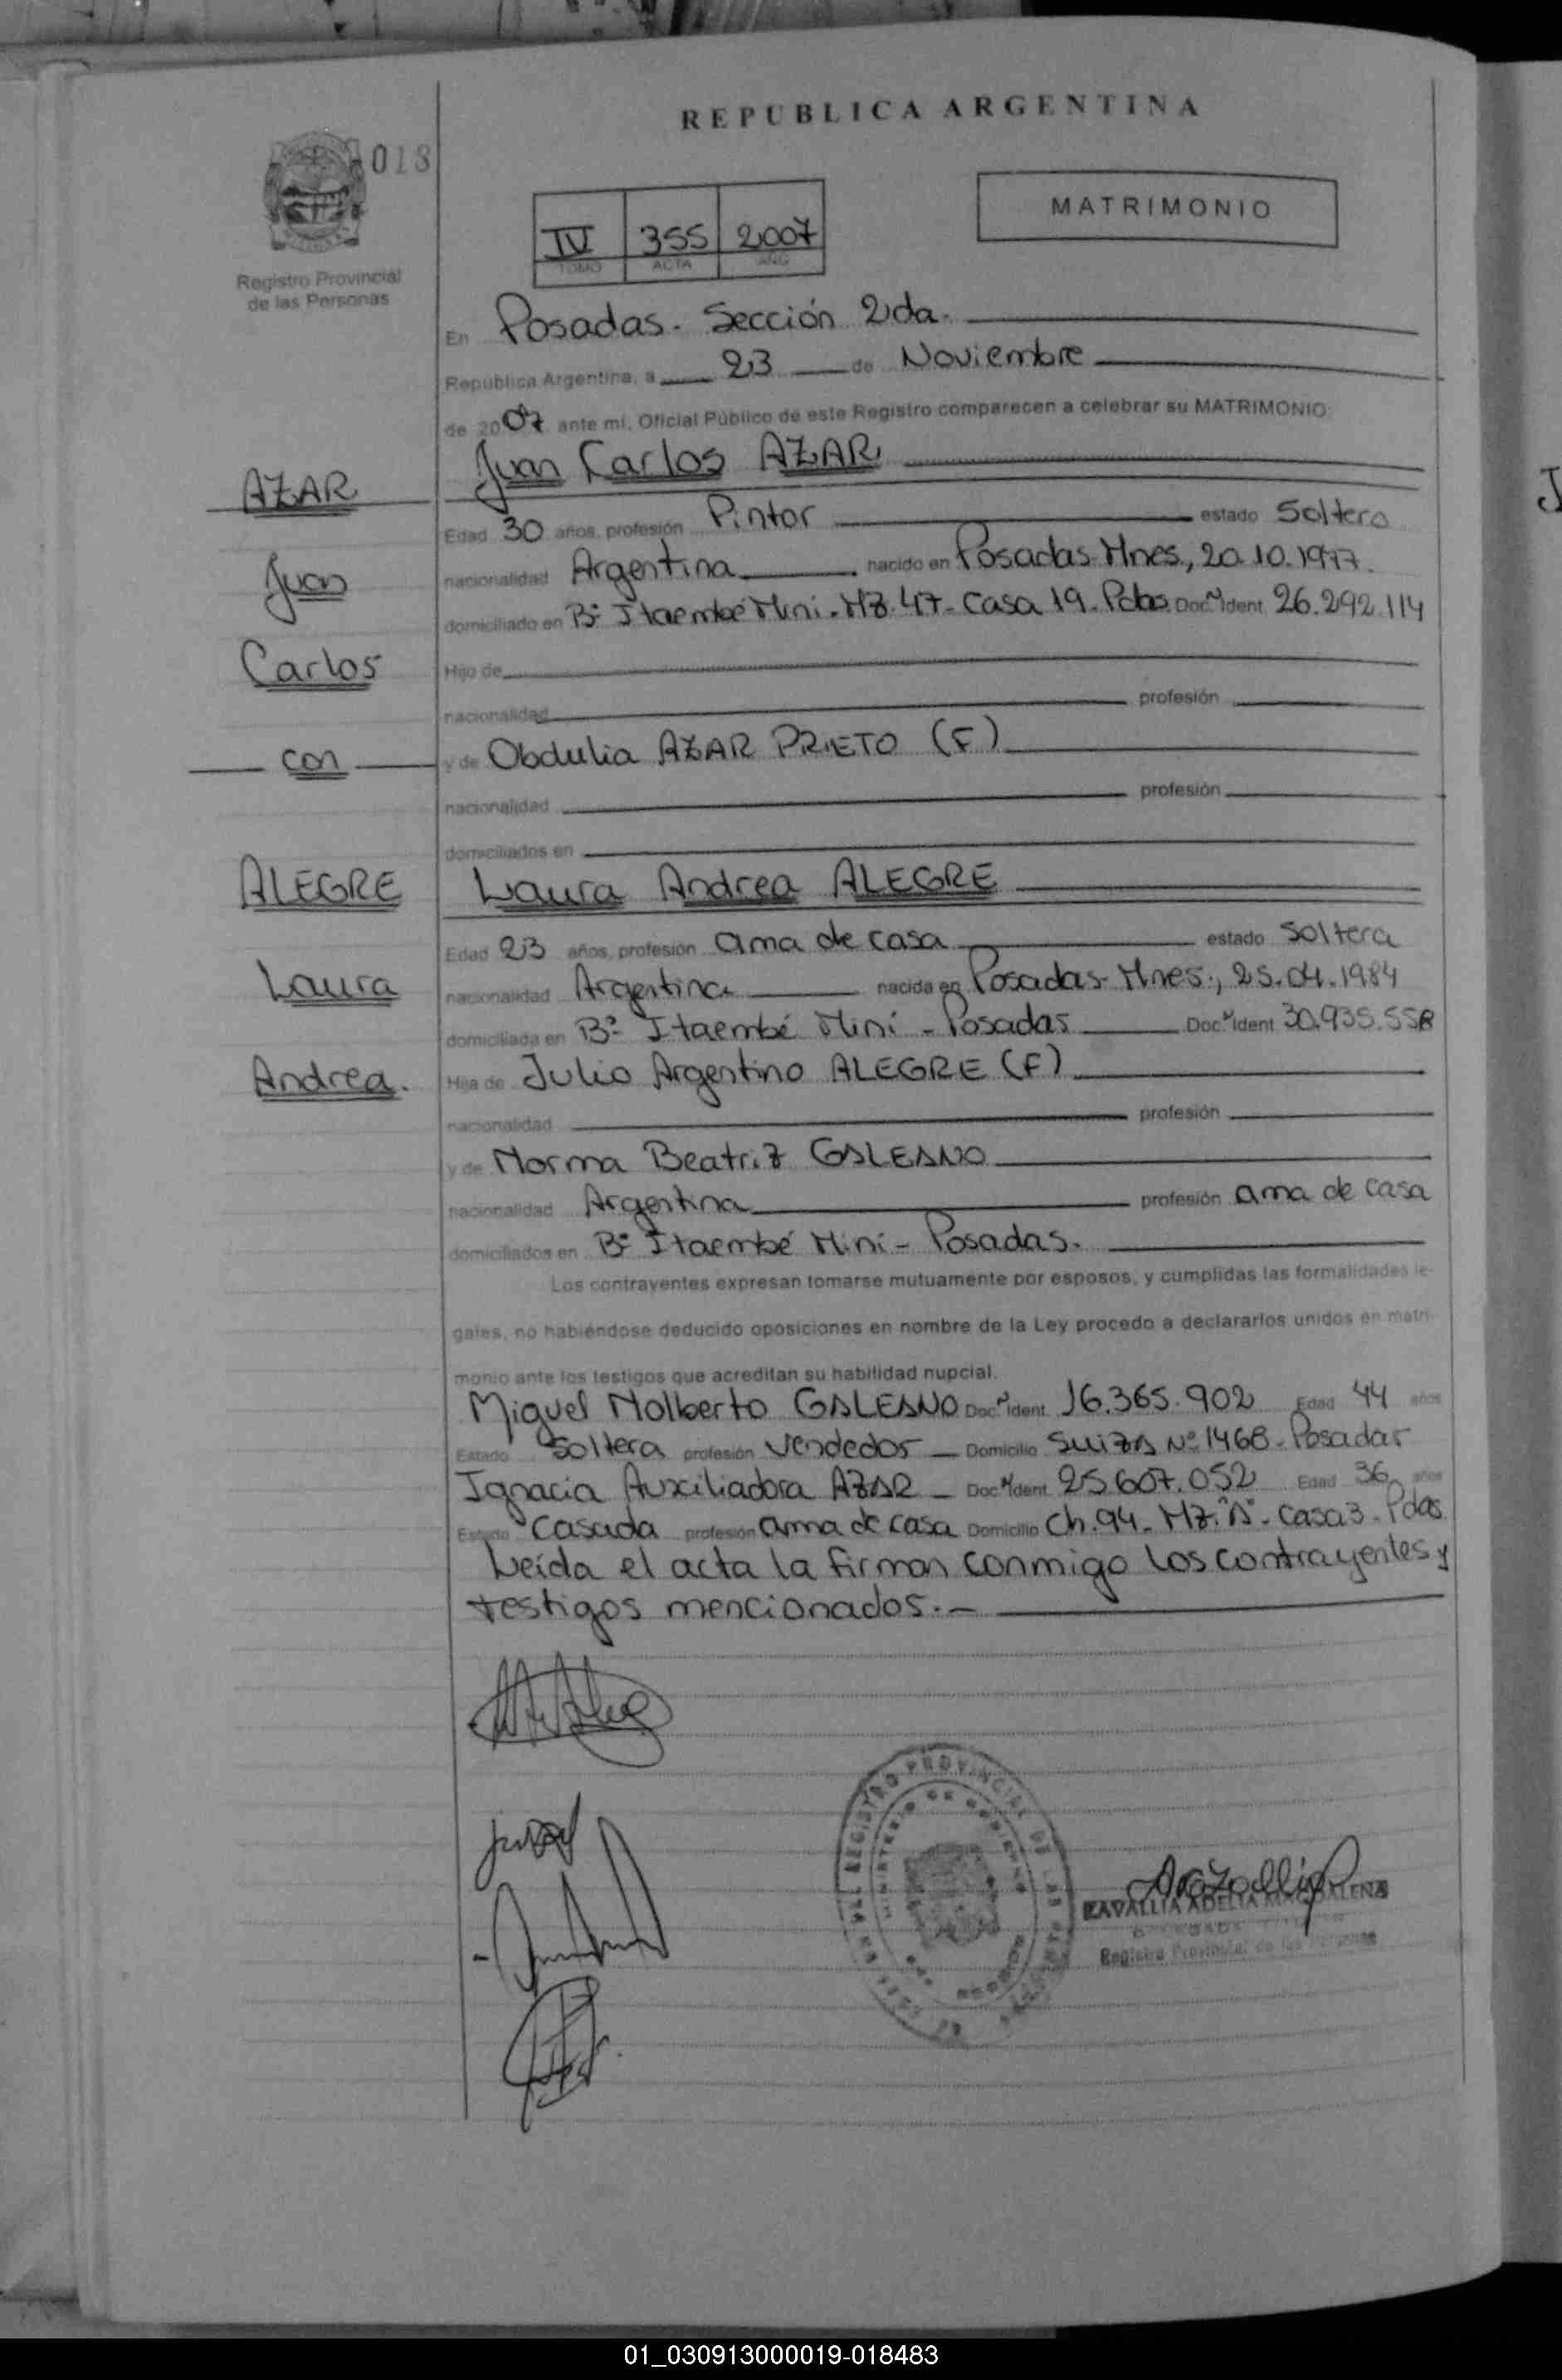 REPUBLICA ARGENTINA
018
MATRIMONIO
IV 355 2007
TOMO ACTA AÑO
Registro Provincial
de las Personas
En Posadas. Sección 2da.
República Argentina, a 23 de Noviembre
de 2007 ante mi, Oficial Público de este Registro comparecen a celebrar su MATRIMONIO:
Juan Carlos AZAR
AZAR
Edad 30 años, profesión Pintor estado Soltero
Juan
nacionalidad Argentina nacido en Posadas-Mnes., 20.10.1977.
domiciliado en B° Itaembé Mini. MZ. 47- Casa 19. Pdas. Doc. N Ident. 26.292.114
Carlos
Hijo de
nacionalidad profesión
con
y de Obdulia AZAR PRIETO (F)
nacionalidad profesión
domiciliados en
ALEGRE
Laura Andrea ALEGRE
Edad 23 años, profesión ama de casa estado Soltera
Laura
nacionalidad Argentina nacida en Posadas-Mnes., 25.04.1984
domiciliada en B° Itaembé Miní - Posadas Doc. N Ident. 30.935.558
Andrea.
Hija de Julio Argentino ALEGRE (F)
nacionalidad profesión
y de Norma Beatriz GALEANO
nacionalidad Argentina profesión ama de casa
domiciliados en B° Itaembé Miní - Posadas.
Los contrayentes expresan tomarse mutuamente por esposos, y cumplidas las formalidades le-
gales, no habiéndose deducido oposiciones en nombre de la Ley procedo a declararlos unidos en matri-
monio ante los testigos que acreditan su habilidad nupcial.
Miguel Nolberto GALEANO Doc. N Ident. 16.365.902 Edad 44 años
Estado Soltera profesión Vendedor - Domicilio SUIZA N° 1468 - Posadas
Ignacia Auxiliadora AZAR - Doc. N Ident. 25.607.052 Edad 36 años
Estado Casada profesión ama de casa Domicilio Ch. 94. MZ. "A". Casa 3. Pdas.
Leída el acta la firman conmigo los contrayentes y
testigos mencionados.-
REGISTRO PROVINCIAL DE LAS
ZAVALLIA ADELIA MAGDALENA
Registro Provincial de las Personas
01_030913000019-018483